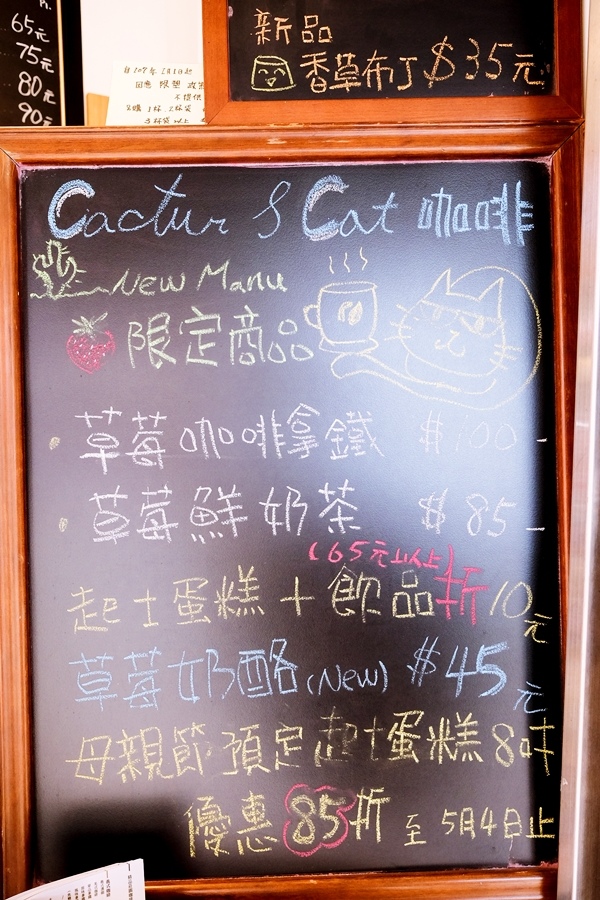 65元
75元
80元
90元
新品
香草布丁 $35元
Cactur & Cat 咖啡
New Manu
限定商品
草莓咖啡拿鐵 $100-
草莓鮮奶茶 $85-
(65元以上)
起士蛋糕+飲品折10元
草莓奶酪(New) $45元
母親節預定起士蛋糕8吋
優惠85折 至 5月4日止